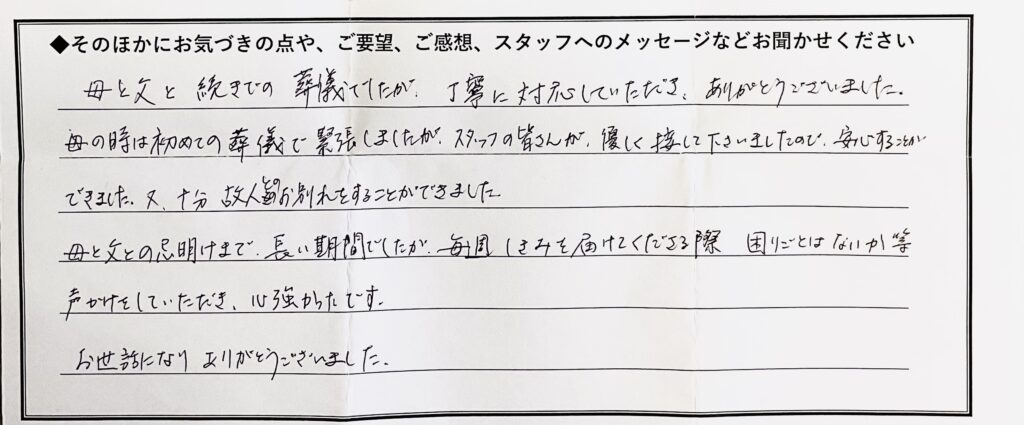 ◆そのほかにお気づきの点や、ご要望、ご感想、スタッフへのメッセージなどお聞かせください
母と父と続きでの葬儀でしたが、丁寧に対応していただき、ありがとうございました。
母の時は初めての葬儀で緊張しましたが、スタッフの皆さんが、優しく接して下さいましたので、安心することが
できました。又、十分故人とのお別れをすることができました
母と父との忌明けまで、長い期間でしたが、毎週しきみを届けてくださる際 困りごとはないか等
声かけをしていただき、心強かったです。
お世話になりありがとうございました。